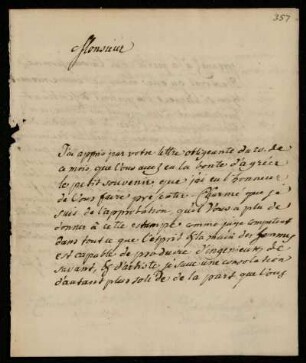 357
Monsieur
J'ai appris par votre lettre obligeante du 20. de
ce mois que Vous avez eu la bonté d'agréer
le petit souvenir que j'ai eu l'honneur
de Vous faire présenter. Charmé que je
suis de l'approbation, qu'il Vous a plu de
donner à cette estampe comme juge competent
dans tout ce que l'esprit & la main des hommes
est capable de produire d'ingenieux, de
savant, & d'artiste, je sens une consolation
d'autant plus solide de la part que Vous